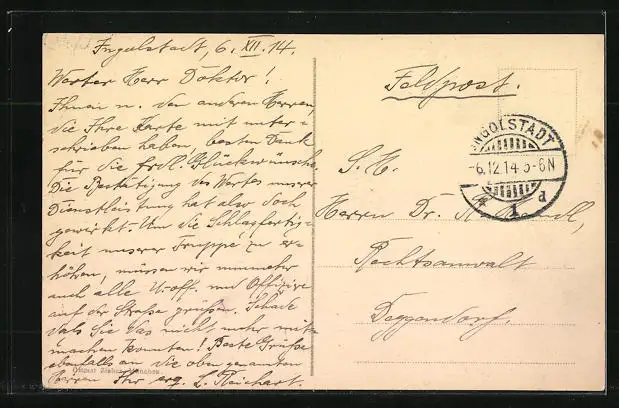 Ingolstadt, 6. XII. 14.
Werter Herr Doktor!
Ihnen u. den anderen Herren,
die Ihre Karte mit unter=
schrieben haben, besten Dank
für die frdl. Glückwünsche.
Die Bestätigung des Wertes unserer
Dienstleistung hat also doch
gewirkt. Um die Schlagfertig=
keit unserer Truppe zu er=
höhen, müssen wir nunmehr
auch alle U-off. und Offiziere
auf der Straße grüßen. Schade
daß Sie das nicht mehr mit
machen konnten! Beste Grüße
ebenfalls an die oben genannten
Herren Ihr erg. L. Reichart.
Ottmar Zieher, München
Feldpost.
INGOLSTADT
-6.12.14.5-6N
1 d
S. H.
Herrn Dr.
Rechtsanwalt
Deggendorf.